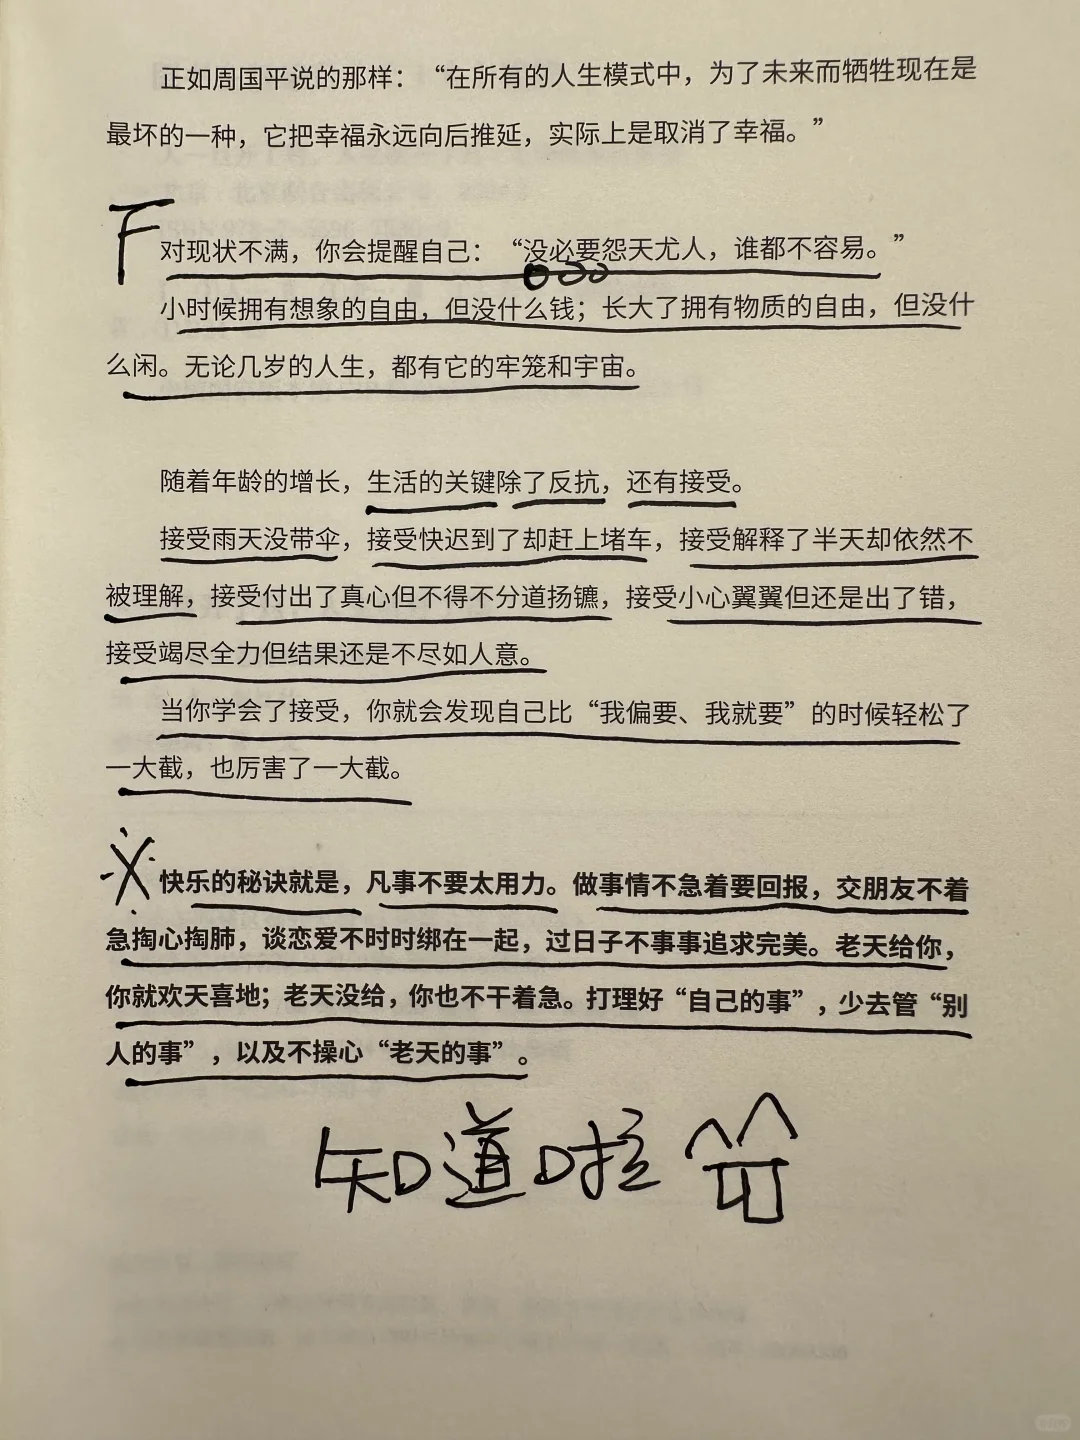 正如周国平说的那样：“在所有的人生模式中，为了未来而牺牲现在是
最坏的一种，它把幸福永远向后推延，实际上是取消了幸福。”
对现状不满，你会提醒自己：“没必要怨天尤人，谁都不容易。”
小时候拥有想象的自由，但没什么钱；长大了拥有物质的自由，但没什
么闲。无论几岁的人生，都有它的牢笼和宇宙。
随着年龄的增长，生活的关键除了反抗，还有接受。
接受雨天没带伞，接受快迟到了却赶上堵车，接受解释了半天却依然不
被理解，接受付出了真心但不得不分道扬镳，接受小心翼翼但还是出了错，
接受竭尽全力但结果还是不尽如人意。
当你学会了接受，你就会发现自己比“我偏要、我就要”的时候轻松了
一大截，也厉害了一大截。
快乐的秘诀就是，凡事不要太用力。做事情不急着要回报，交朋友不着
急掏心掏肺，谈恋爱不时时绑在一起，过日子不事事追求完美。老天给你，
你就欢天喜地；老天没给，你也不干着急。打理好“自己的事”，少去管“别
人的事”，以及不操心“老天的事”。
知道啦